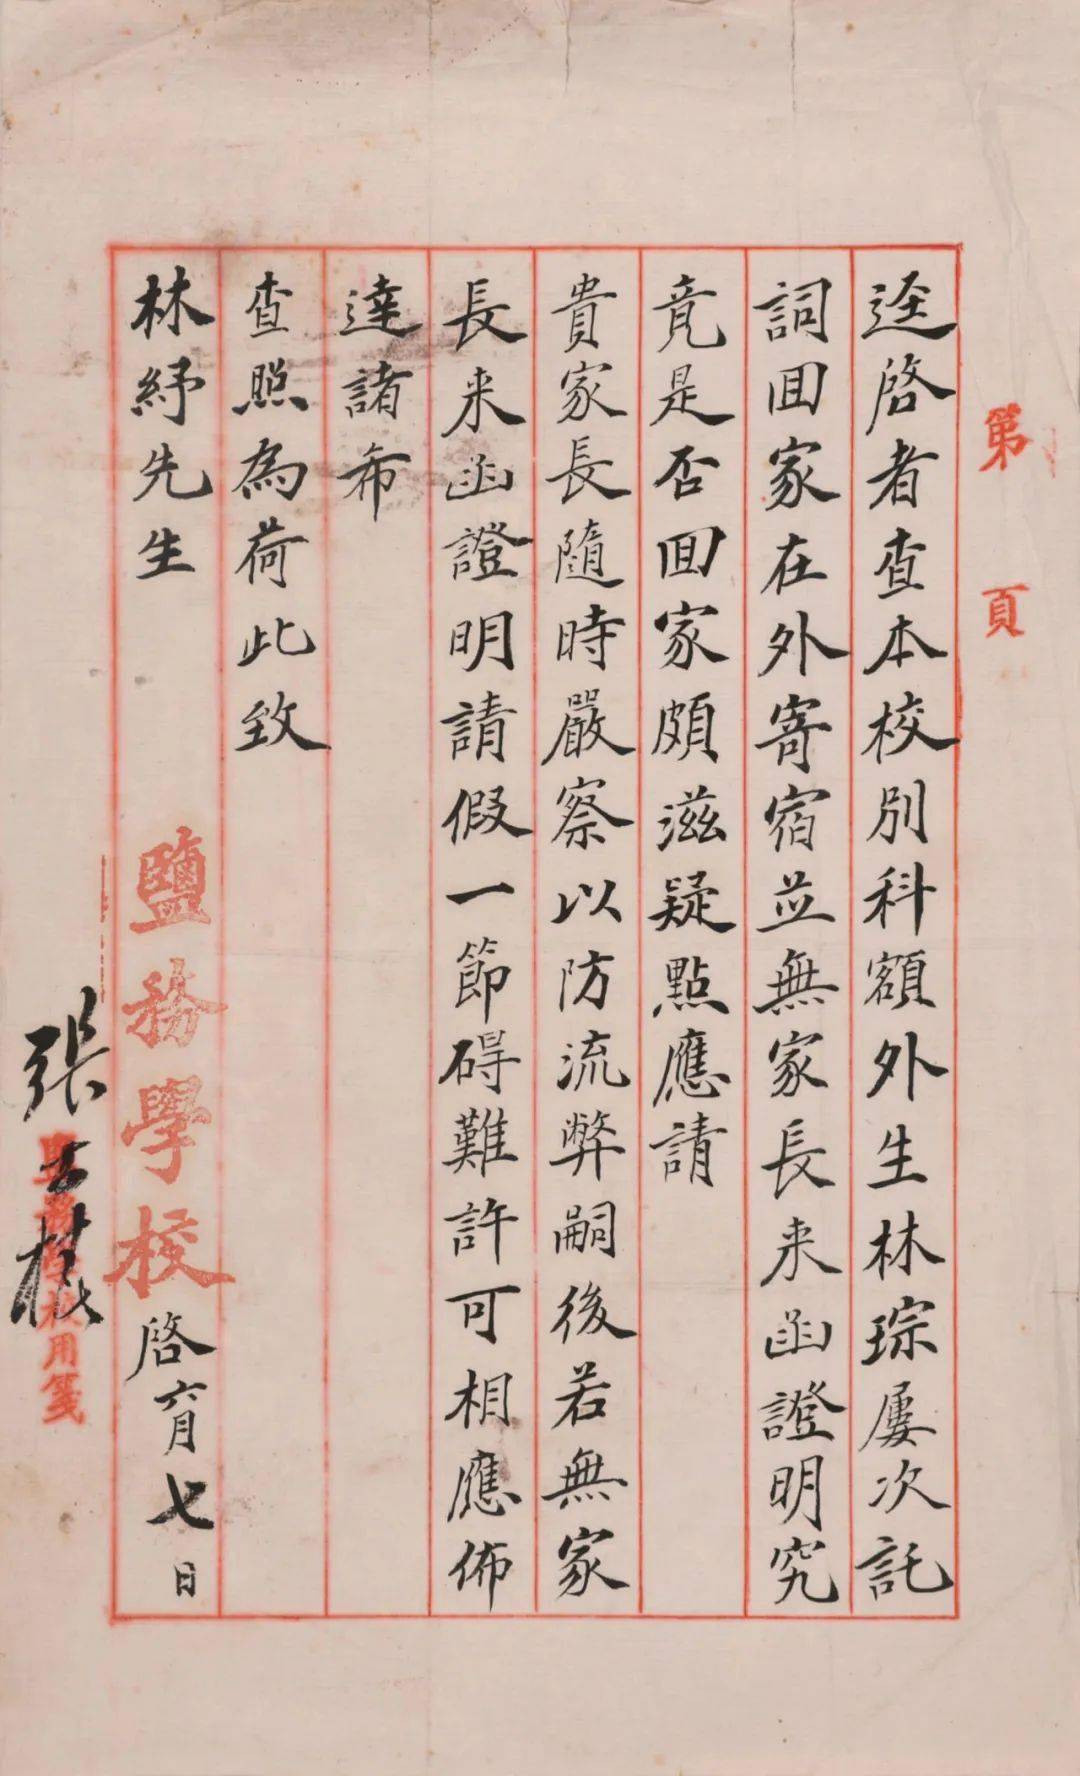 第 頁
逕啓者查本校別科額外生林琮屢次託
詞囬家在外寄宿並無家長来函證明究
竟是否囬家頗滋疑點應請
貴家長隨時嚴察以防流弊嗣後若無家
長来函證明請假一節碍難許可相應佈
達諸希
查照為荷此致
林紓先生
鹽務學校啓六月七日
鹽務學校用箋
張